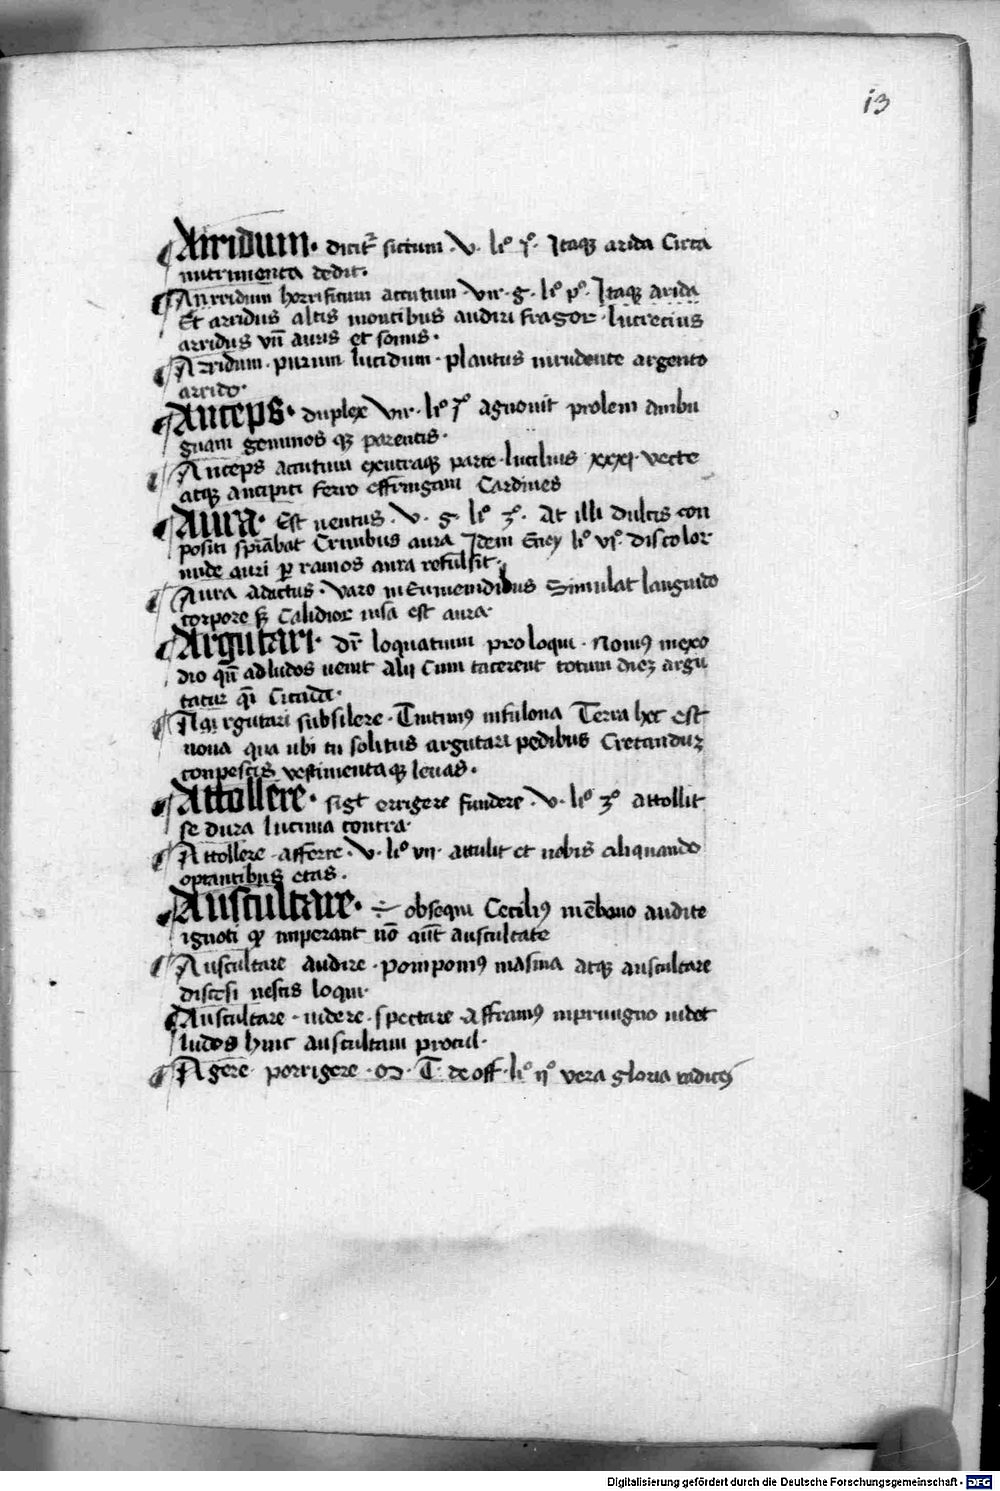 13
Airidum · dicitr sictum · V · lio io · Itaqz arida Circa
nutrimenta dedit ·
Anrridum horrificum accutum · Vir · g · lio po · Itaqz arida
Et arridus altis montibus audiri fragor · lucrecius
arridus vn̄ auris et sonus ·
Arridum · purum lucidum · plautus nirudente argento
arrido ·
Anceps · duplex Vir · lio io agnouit prolem ambi
guam geminos qz parentis ·
Anceps accutum exutraqz parte · lucilius xxxi · vecte
atqz ancipiti ferro effringam Cardines
Aura · Est uentus · V · g · lio 3o · At illi dulcis con
positi spirabat Crinibus aura Idem Eney lio vio discolor
unde auri p ramos aura refulsit ·
Aura adictus · varo in Eumenidibus Simulat languido
corpore sz Calidior iusa est aura ·
Argutari · dr̄ loquatium proloqui · Noui9 inexo
dio qn̄ ad ludos uenit alij Cum tacerent totum diez argu
tatur qi Cicada ·
Aqi rgutari subsilere · Titini9 infulona Terra hec est
noua qua ubi tu solitus argutari pedibus Cretanduz
conpescis vestimentaqz leuas ·
Attollere · sigt errigere fundere · V · lio 3o attollit
se dura lucina contra ·
Attollere afferre · V · lio vii · attulit et nobis aliquando
optantibus etas ·
Auscultare · ÷ obsequi Cecili9 in ēbono audite
ignoti q imperant nō aūt auscultate
Auscultare audire · pomponi9 masina atqz auscultare
discesi nescis loqui ·
Auscultare · uidere · spectare Affrani9 inpriuigno uidet
ludos hinc auscultaui procul ·
Agere porrigere · M · T · de off · lio ijo vera gloria radices
Digitalisierung gefördert durch die Deutsche Forschungsgemeinschaft · DFG